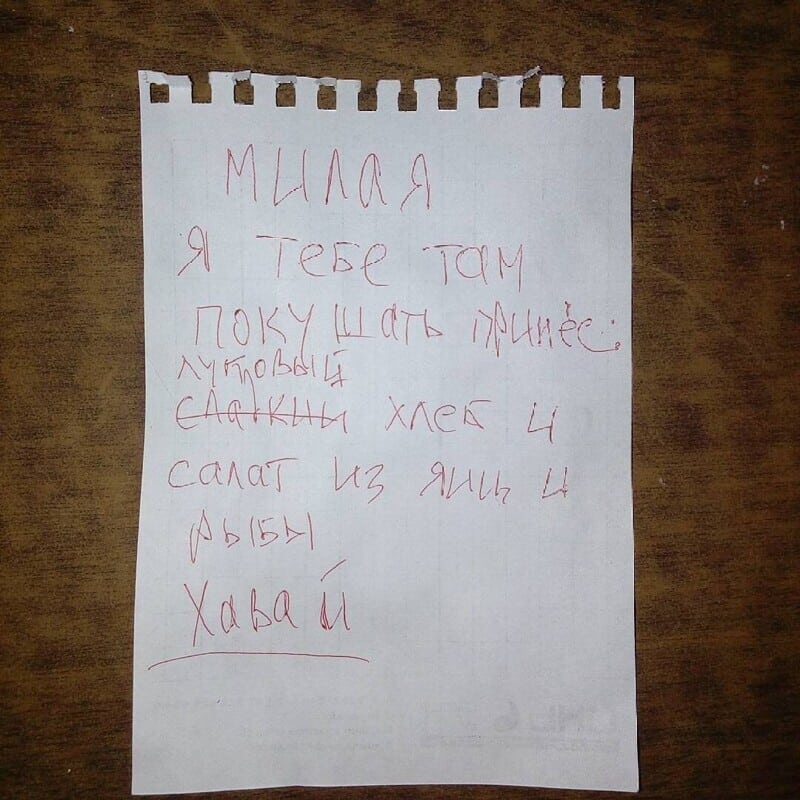 Милая
я тебе там
покушать принёс:
луковый
сладкий хлеб и
салат из яиц и
рыбы
Хавай